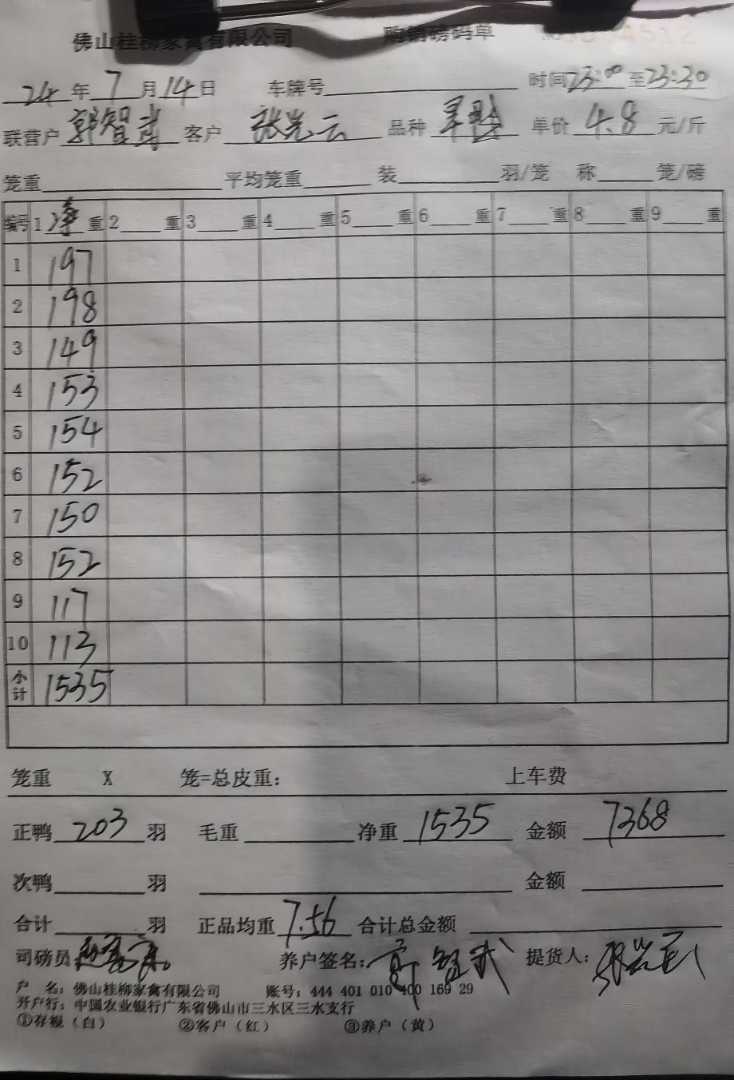 佛山桂柳家禽有限公司 购销磅码单
24年7月14日 车牌号 时间23:00至23:30
联营户郭智武 客户张光云 品种 单价4.8元/斤
笼重 平均笼重 装 羽/笼 称 笼/磅
编号 1净重 2 重 3 重 4 重 5 重 6 重 7 重 8 重 9 重
1 197
2 198
3 149
4 153
5 154
6 152
7 150
8 152
9 117
10 113
小计 1535
笼重 X 笼=总皮重: 上车费
正鸭203羽 毛重 净重1535 金额7368
次鸭 羽 金额
合计 羽 正品均重7.56 合计总金额
司磅员 养户签名:郭智武 提货人:张光云
户 名: 佛山桂柳家禽有限公司 账号: 444 401 010 400 169 29
开户行: 中国农业银行广东省佛山市三水区三水支行
①存根（白） ②客户（红） ③养户（黄）